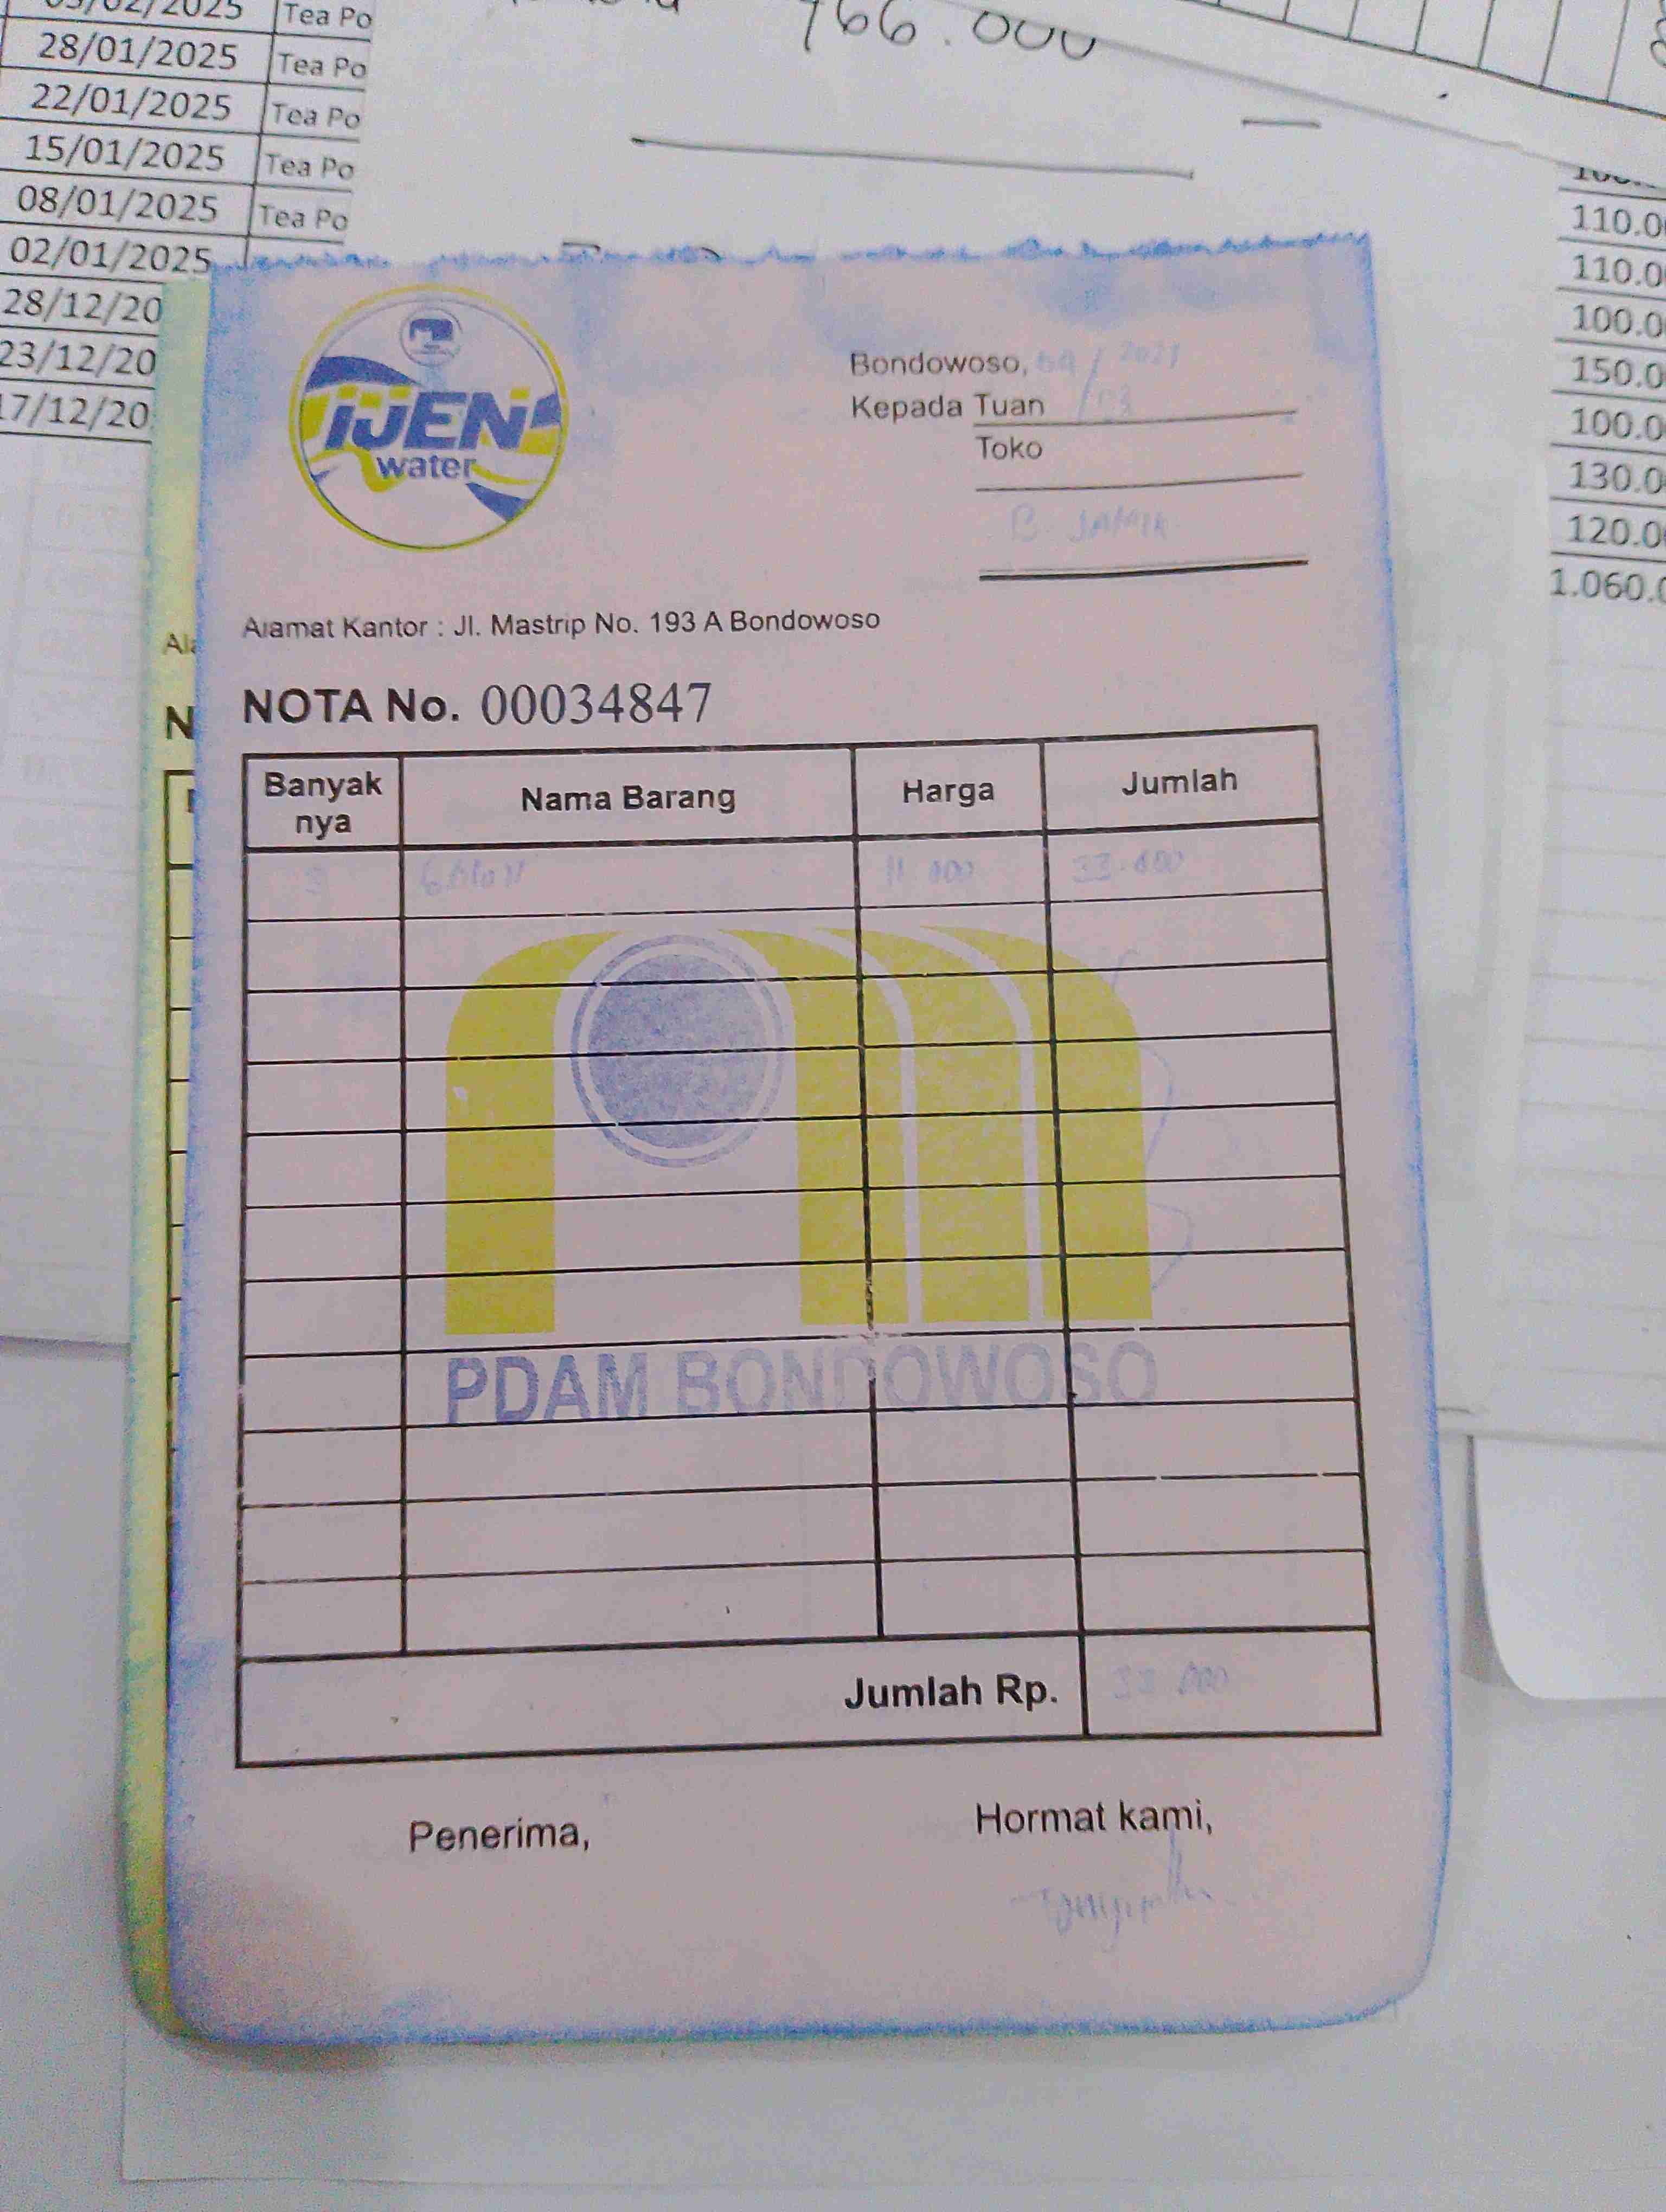 28/01/2025 Tea Po
22/01/2025 Tea Po
15/01/2025 Tea Po
08/01/2025 Tea Po
02/01/2025
28/12/20
23/12/20
17/12/20
766.000
110.0
110.0
100.0
150.0
100.0
130.0
120.0
1.060.0
IJEN
water
Bondowoso,
Kepada Tuan
Toko
Alamat Kantor : Jl. Mastrip No. 193 A Bondowoso
NOTA No. 00034847
Banyak nya Nama Barang Harga Jumlah
3 Galon 11.000 33.000
PDAM BONDOWOSO
Jumlah Rp. 33.000
Penerima, Hormat kami,